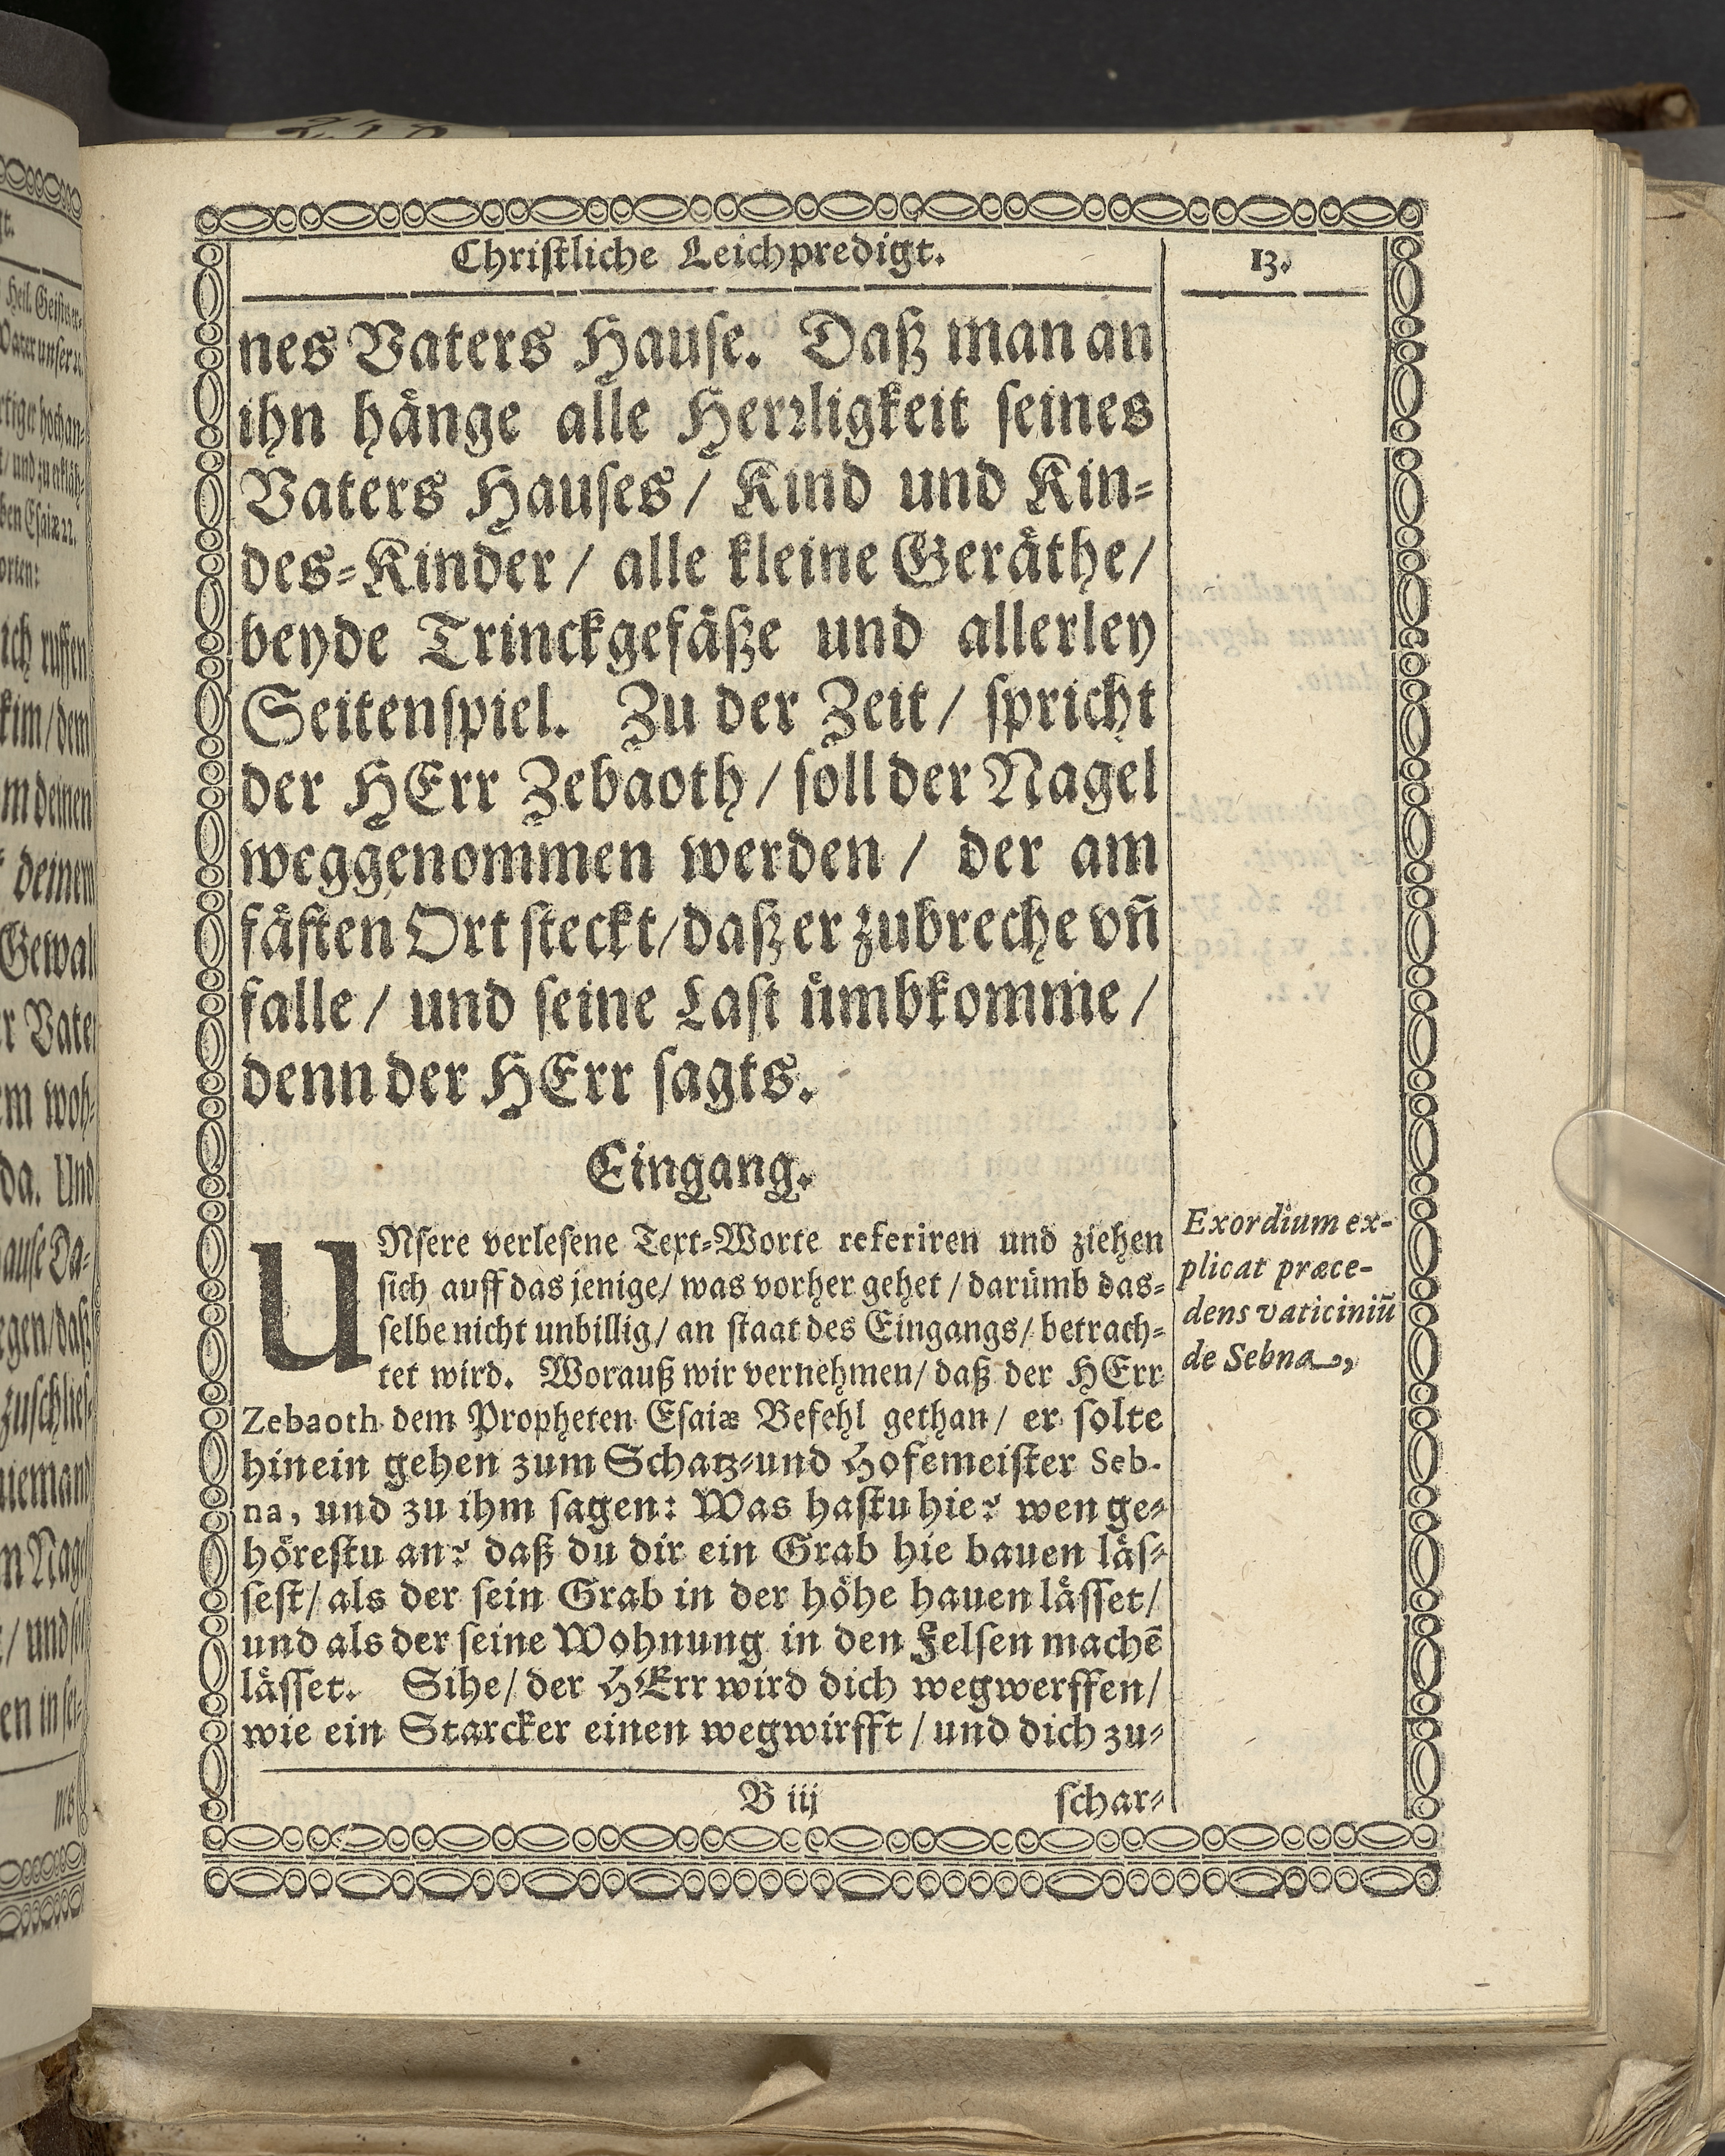 Christliche Leichpredigt.
13.
nes Vaters Hause. Daß man an
ihn hänge alle Herrligkeit seines
Vaters Hauses / Kind und Kin=
des=Kinder / alle kleine Geräthe /
beyde Trinckgefäße und allerley
Seitenspiel. Zu der Zeit / spricht
der HErr Zebaoth / soll der Nagel
weggenommen werden / der am
fästen Ort steckt / daß er zubreche vn̄
falle / und seine Last ümbkomme /
denn der HErr sagts.
Eingang.
UNsere verlesene Text=Worte referiren und ziehen
sich auff das jenige / was vorher gehet / darümb das=
selbe nicht unbillig / an staat des Eingangs / betrach=
tet wird. Worauß wir vernehmen / daß der HErr
Zebaoth dem Propheten Esaiæ Befehl gethan / er solte
hinein gehen zum Schatz=und Hofemeister Seb-
na, und zu ihm sagen: Was hastu hie? wen ge=
hörestu an? daß du dir ein Grab hie bauen läs=
sest / als der sein Grab in der höhe hauen lässet /
und als der seine Wohnung in den Felsen machē
lässet. Sihe / der HErr wird dich wegwerffen /
wie ein Starcker einen wegwirfft / und dich zu=
Exordium ex-
plicat præce-
dens vaticiniū
de Sebna,
B iij
schar=